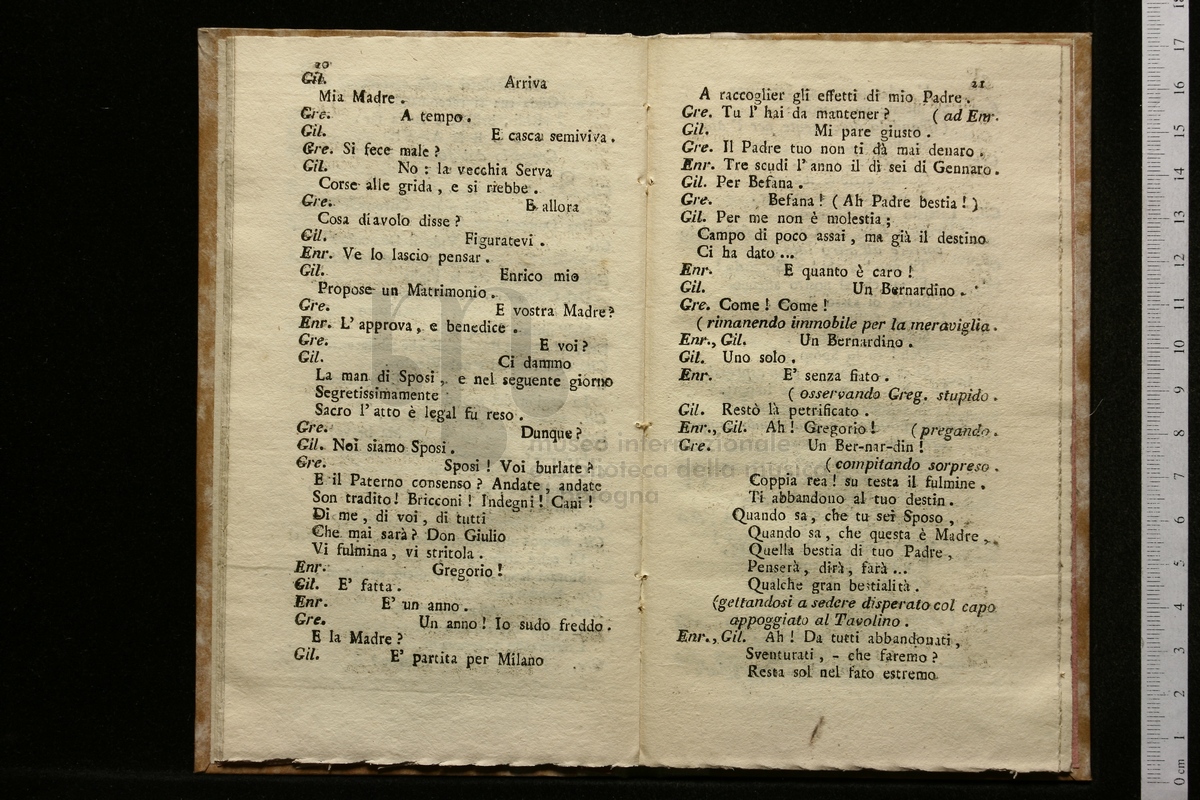 20
Gil. Arriva
Mia Madre.
Gre. A tempo.
Gil. E casca semiviva.
Gre. Si fece male?
Gil. No: la vecchia Serva
Corse alle grida, e si riebbe.
Gre. E allora
Cosa diavolo disse?
Gil. Figuratevi.
Enr. Ve lo lascio pensar.
Gil. Enrico mio
Propose un Matrimonio.
Gre. E vostra Madre?
Enr. L'approva, e benedice.
Gre. E voi?
Gil. Ci dammo
La man di Sposi, e nel seguente giorno
Segretissimamente
Sacro l'atto è legal fu reso.
Gre. Dunque?
Gil. Noi siamo Sposi.
Gre. Sposi! Voi burlate?
E il Paterno consenso? Andate, andate
Son tradito! Bricconi! Indegni! Cani!
Di me, di voi, di tutti
Che mai sarà? Don Giulio
Vi fulmina, vi stritola.
Enr. Gregorio!
Gil. E' fatta.
Enr. E' un anno.
Gre. Un anno! Io sudo freddo.
E la Madre?
Gil. E' partita per Milano
21
A raccoglier gli effetti di mio Padre.
Gre. Tu l'hai da mantener? (ad Enr.
Gil. Mi pare giusto.
Gre. Il Padre tuo non ti dà mai denaro.
Enr. Tre scudi l'anno il dì sei di Gennaro.
Gil. Per Befana.
Gre. Befana! (Ah Padre bestia!)
Gil. Per me non è molestia;
Campo di poco assai, ma già il destino
Ci ha dato...
Enr. E quanto è caro!
Gil. Un Bernardino.
Gre. Come! Come!
(rimanendo immobile per la meraviglia.
Enr., Gil. Un Bernardino.
Gil. Uno solo.
Enr. E' senza fiato.
(osservando Greg. stupido.
Gil. Restò là petrificato.
Enr., Gil. Ah! Gregorio! (pregando.
Gre. Un Ber-nar-din!
(compitando sorpreso.
Coppia rea! su testa il fulmine.
Ti abbandono al tuo destin.
Quando sa, che tu sei Sposo,
Quando sa, che questa è Madre,
Quella bestia di tuo Padre,
Penserà, dirà, farà...
Qualche gran bestialità.
(gettandosi a sedere disperato col capo
appoggiato al Tavolino.
Enr., Gil. Ah! Da tutti abbandonati,
Sventurati, - che faremo?
Resta sol nel fato estremo
museo internazionale
biblioteca della musica
bologna
0 cm 1 2 3 4 5 6 7 8 9 10 11 12 13 14 15 16 17 18